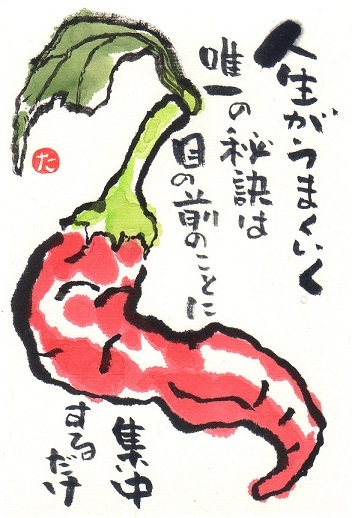 人生がうまくいく
唯一の秘訣は
目の前のことに
集中
するだけ
た